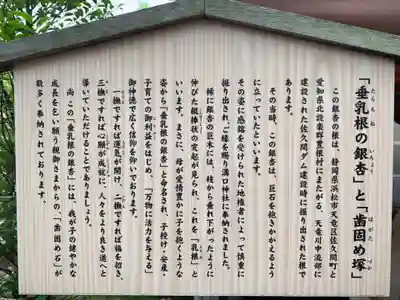 「垂乳根の銀杏」と「歯固め塚」
たらちね いちょう はがた づか
この銀杏の根は、静岡県浜松市天竜区佐久間町と
愛知県北設楽郡豊根村にまたがる、天竜川中流部に
建設された佐久間ダム建設時に掘り出された根で
あります。
その当時、この銀杏は、巨石を抱きかかえるよう
に立っていたといいます。
その姿に感銘を受けられた地権者によって慎重に
掘り出され、ご縁を賜り溝口神社に奉納されました。
稀に銀杏の巨木には、枝から垂れ下がったように
伸びた銀棒状の突起が見られ、これを「乳根」と
いいます。まさに、母が愛情豊かに子を抱くような
姿から「垂乳根の銀杏」と命名され、子授け・安産・
子育ての御利益をはじめ、「万物に活力を与える」
御神徳で広く信仰を仰いでおります。
一撫ですれば運気が開け、二撫ですれば福を招き、
三撫ですれば心願が成就に、人々をより良き道へと
導いていただけることでありましょう。
尚、この「垂乳根の銀杏」には、我が子の健やかな
成長を乞い願う親御さまからの、「歯固め石」が
数多く奉納されております。